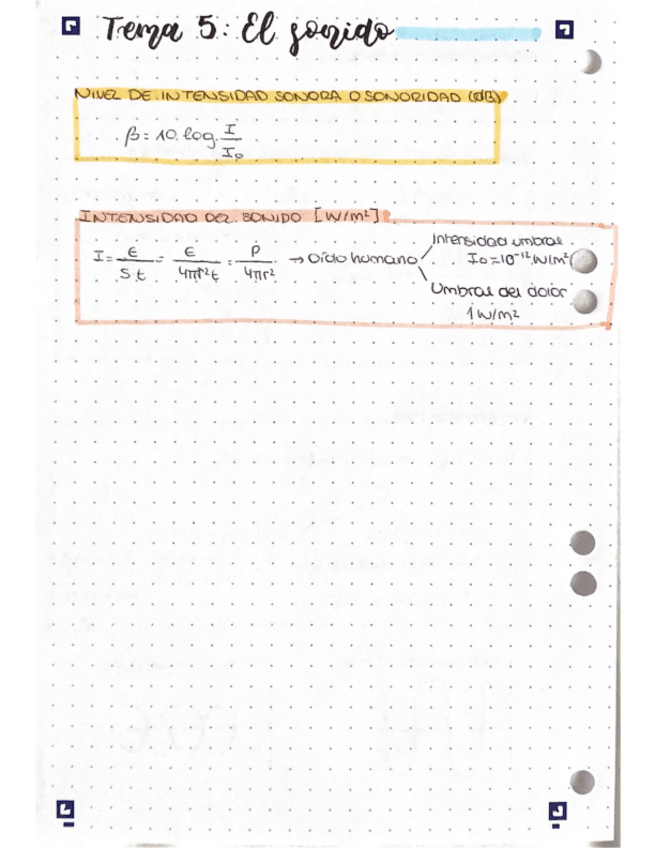 Tema 5: El sonido
NIVEL DE INTENSIDAD SONORA O SONORIDAD (dB)
β = 10. log. I/I₀
INTENSIDAD DEL SONIDO [W/m²]
I = E/S.t = E/4πr²t = P/4πr² → Oído humano
Intensidad umbral
I₀ = 10⁻¹² W/m²
Umbral del dolor
1 W/m²